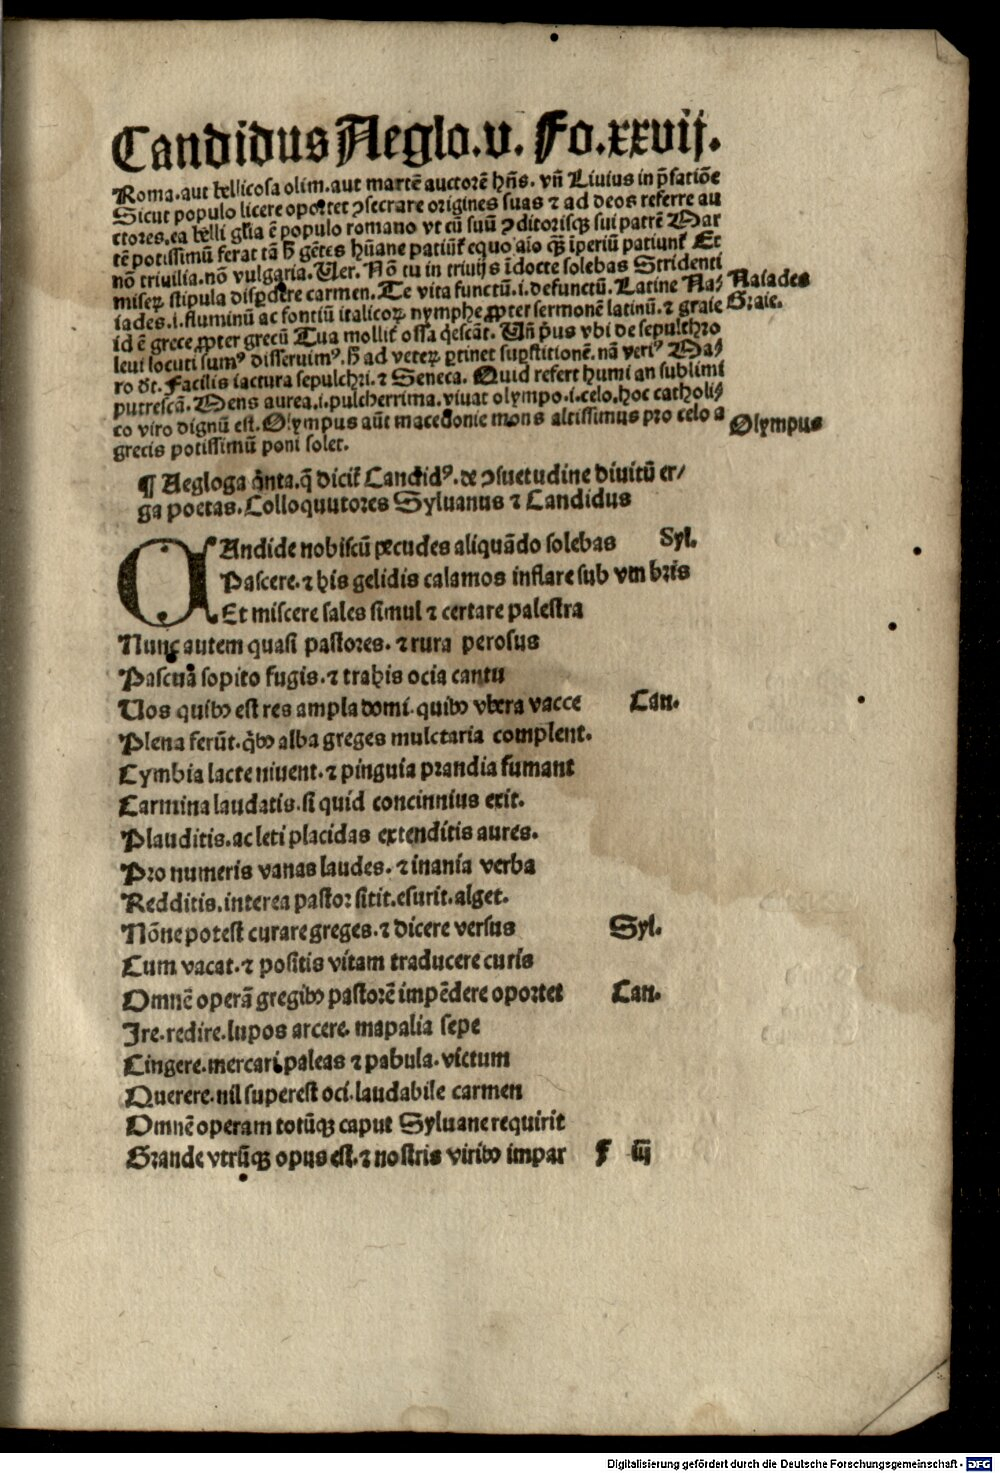 Candidus Aeglo.v. Fo.xxvij.
Roma.aut bellicosa olim.aut martē auctorē hn̄s. vn̄ Liuius in p̄fatiōe
Sicut populo licere oportet ꝯsecrare origines suas ⁊ ad deos referre au
ctores.ea belli gl̄ia ē populo romano vt cū suū ꝯditorisqꝫ sui patrē Mar
tē potissimū ferat tā h̄ gētes hūane patiūt᷑ equo aīo qꝫ̄ īperiū patiunt᷑ Et
nō triuilia.nō vulgaria.Uer. Nō tu in triuijs īdocte solebas Stridenti
miseꝝ stipula disꝑdere carmen. Te vita functū.i.defunctū. Latine Na⸗ Naiades
iades.i.fluminū ac fontiū italicoꝝ nymphe ꝓpter sermonē latinū.⁊ graie Graie.
id ē grece ꝓpter grecū Tua mollit᷑ ossa q̄escāt. Un̄ p̄us vbi de sepulchro
leui locuti sumꝰ disseruimꝰ. h̄ ad veteꝝ ꝑtinet suꝑstitionē. nā veriꝰ Ma⸗
ro dt̄. Facilis iactura sepulchri.⁊ Seneca. Quid refert humi an sublimi
putrescā. Mens aurea.i.pulcherrima.viuat olympo.i.celo.hoc catholi⸗
co viro dignū est. Olympus aūt macedonie mons altissimus pro celo a Olympus
grecis potissimū poni solet.
¶ Aegloga q̄nta.q̄ dicit᷑ Candidꝰ.de ꝯsuetudine diuitū er⸗
ga poetas. Colloquutores Syluanus ⁊ Candidus
CAndide nobiscū pecudes aliquādo solebas Syl.
Pascere.⁊ his gelidis calamos inflare sub vm bris
Et miscere sales simul ⁊ certare palestra
Nunc autem quasi pastores.⁊ rura perosus
Pascua sopito fugis.⁊ trahis ocia cantu
Uos quibꝰ est res ampla domi.quibꝰ vbera vacce Can.
Plena ferūt.q̄bꝰ alba greges mulctaria complent.
Cymbia lacte niuent.⁊ pinguia prandia fumant
Carmina laudatis.si quid concinnius exit.
Plauditis.ac leti placidas extenditis aures.
Pro numeris vanas laudes.⁊ inania verba
Redditis.interea pastor sitit.esurit.alget.
Nōne potest curare greges.⁊ dicere versus Syl.
Cum vacat.⁊ positis vitam traducere curis
Omnē operā gregibꝰ pastorē impēdere oportet Can.
Ire.redire.lupos arcere.mapalia sepe
Cingere.mercari paleas ⁊ pabula.victum
Querere.nil superest oci.laudabile carmen
Omnē operam totūqꝫ caput Syluane requirit
Grande vtrūqꝫ opus est.⁊ nostris viribꝰ impar F iij
Digitalisierung gefördert durch die Deutsche Forschungsgemeinschaft - DFG